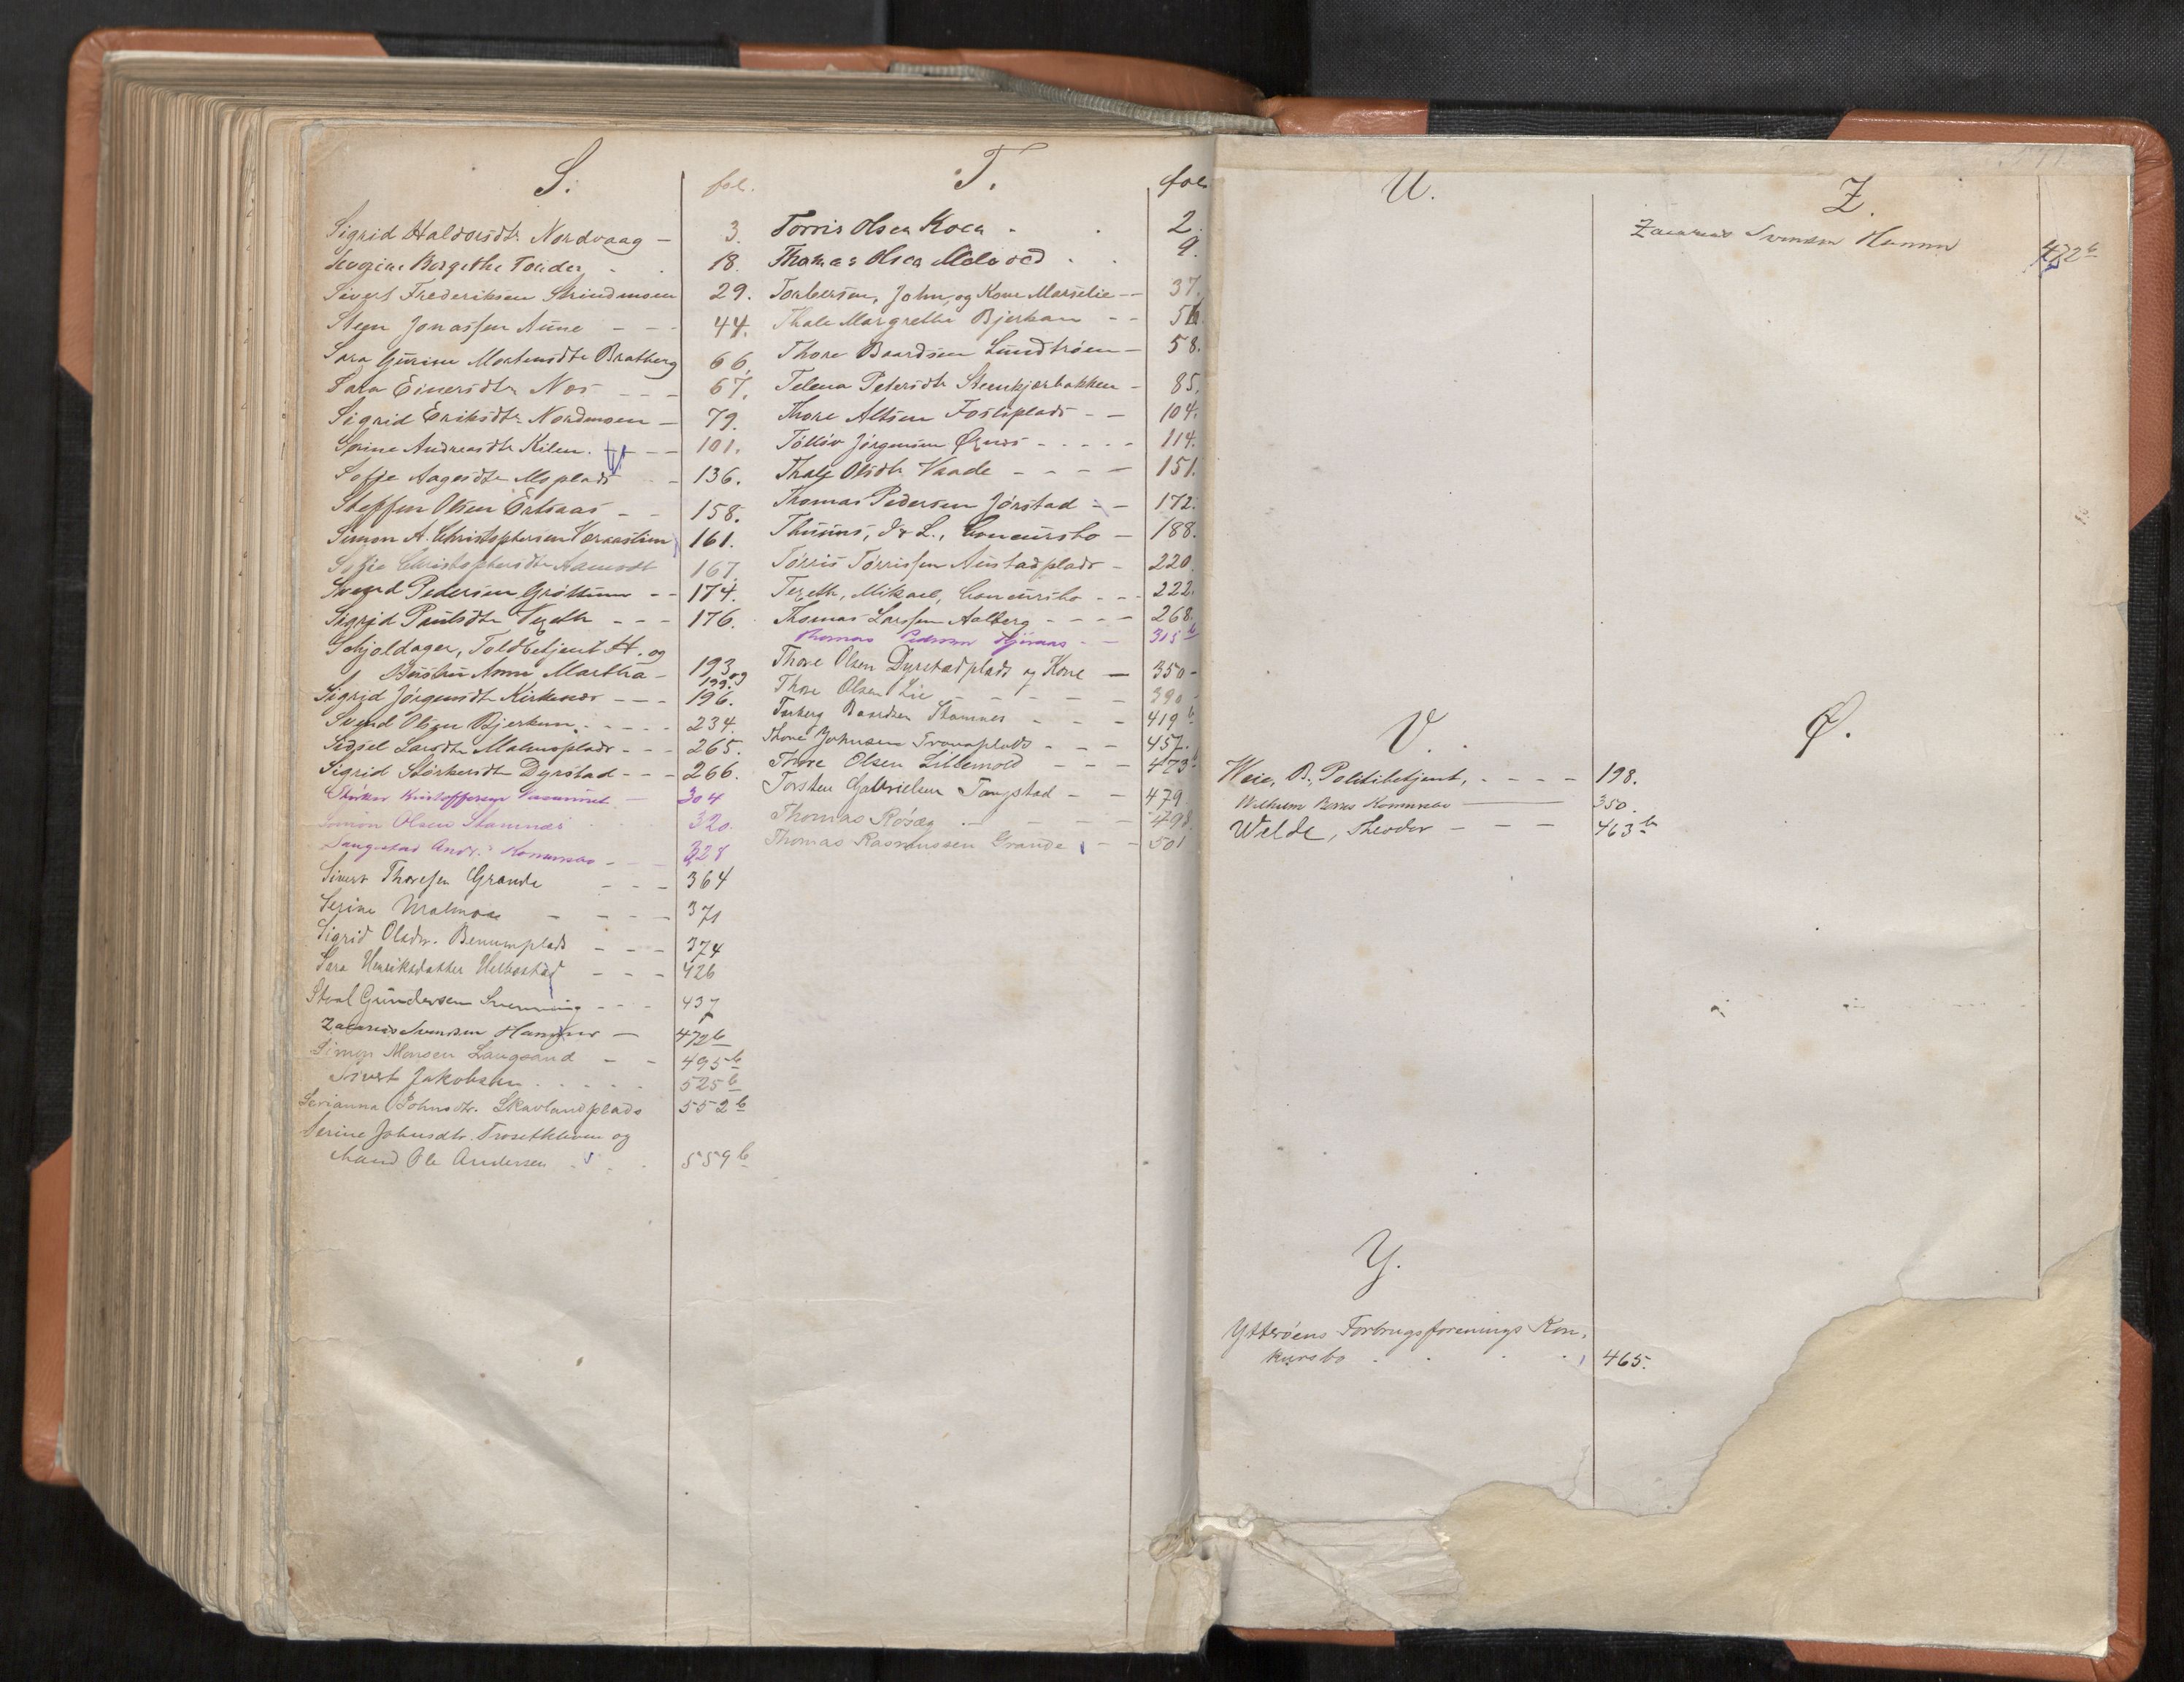 S.
fol.
Sigrid Haldorsdtr Nordvaag - 3.
Severine Bergithe Tønder . . 18.
Sivert Frederiksen Strindmoen 29.
Steen Jonassen Aune - - - 44.
Sara Gurine Mortensdtr Bratberg 66.
Sara Einersdtr Nos - - - 67.
Sigrid Eriksdtr Nordmoen - 79.
Sørine Andreasdtr Kilen. - - 101.
Sofie Aagesdtr Msplads - 136.
Steffen Olsen Ertsaas - - 158.
Simon A. Christophersen 161.
Sofie Christophersdtr 167.
Svend Pedersen Grøttum - - 174.
Sigrid Paulsdtr - - - 176.
Schjoldager, Toldbetjent H. og
Hustru Anna Martha - 193 og 199.
Sigrid Jörgensdtr Kirkenær - - - 196.
Svend Olsen Bjerkem. - - - - 234.
Sidsel Larsdtr Malmoplads - - - 265.
Sigrid Størkersdtr Dyrstad - - - 266.
Størker Kristoffersen - 304
Simon Olsen Stamnæs . . . 320.
Saugestad Andr. Konkursbo - - - 328
Sivert Thoresen Grande - - - 364
Serine Malmoe - - - - 371
Sigrid Olsdtr. Benumplads - - - 374
Sara Henriksdatter Helbostad - - - 426
Staal Gundersen - - - 437
Zacarias Svendsen Hammer - 472 b
Simon Monsen Langsand - - 495 b
Sivert Jakobsen . . . . . 525 b
Serianna Johnsdtr. Skavlandplads 552 b
Serine Johnsdtr. Trosetkleven og
Mand Ole Andersen . . . 559 b
T.
fol.
Torris Olsen Koen . . 2.
Thomas Olsen . . 9.
Torbersen, John, og Kone Marselie - - 37.
Thale Margrethe Bjerkan - - 56
Thore Baardsen Lundtrøen - 58.
Telena Petersdtr Steenkjærbakken - 85.
Thore Altsen Fosliplads - - 104.
Tollöv Jörgensen Øynæs - - - - - 114.
Thale Olsdtr Vaade - - - - 151.
Thomas Pedersen Jörstad - - 172.
Thuums, J & L., Concursbo - 188.
Törris Törrissen Austadplads - 220.
Tereth, Mikael, Concursbo - - - 222.
Thomas Larssen Aalberg - - - - 268.
Thomas Pedersen - - 315 b
Thore Olsen Dyrstadplads og Kone - 350 -
Thore Olsen Lie - - - - - 390 -
Torberg Baardsen Stamnes - - - 419 b
Thore Johnsen Tronsplads - - - 457.
Thore Olsen Lillemoed - - - 473 b
Torsten Gabrielsen Tangstad - - 479
Thomas Rösæg . - - - - - 498.
Thomas Rasmussen Grande - - 501
U.
Z.
Zacarias Svendsen Hammer 472 b
V.
Weie, B., Politibetjent, - - - - 198.
Wilhelm Konkursbo - 350.
Welde, Theodor - - - 463 b
Ø.
Y.
Ytterøens Forbrugsforenings Kon-
kursbo . . . . 465.